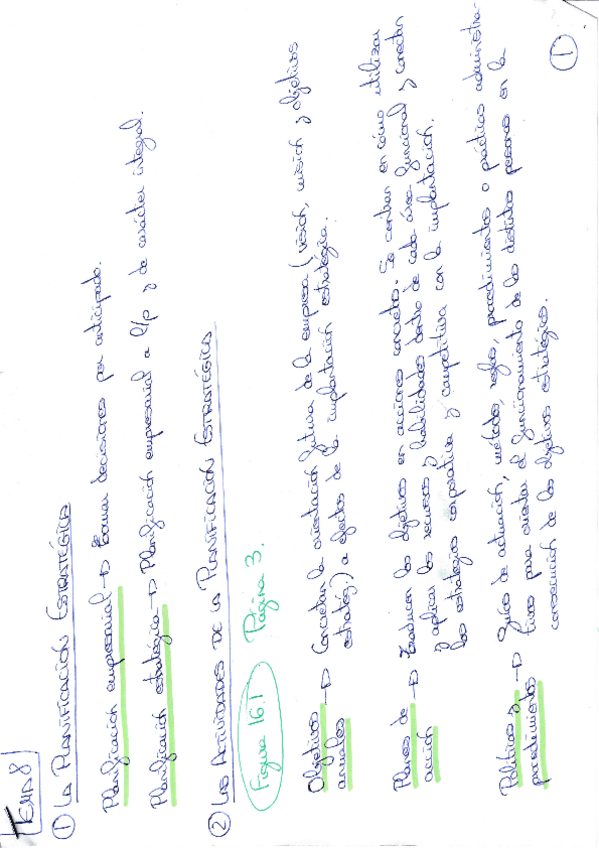 TEMA 8
① LA PLANIFICACIÓN ESTRATÉGICA
Planificación empresarial → Tomar decisiones por anticipado.
Planificación estratégica → Planificación empresarial a l/p y de carácter integral.
② LAS ACTIVIDADES DE LA PLANIFICACIÓN ESTRATÉGICA
Figura 16.1 Página 3.
Objetivos anuales → Concretan la orientación futura de la empresa (visión, misión y objetivos
estratég.) a efectos de la implantación estratégica.
Planes de acción → Traducen los objetivos en acciones concretas. Se centran en cómo utilizar
y aplicar los recursos y habilidades dentro de cada área funcional y conectan
las estrategias corporativa y competitiva con la implantación.
Políticas y procedimientos → Guías de actuación, métodos, reglas, procedimientos o prácticas administra-
tivas para orientar el funcionamiento de las distintas personas en la
consecución de los objetivos estratégicos.
①